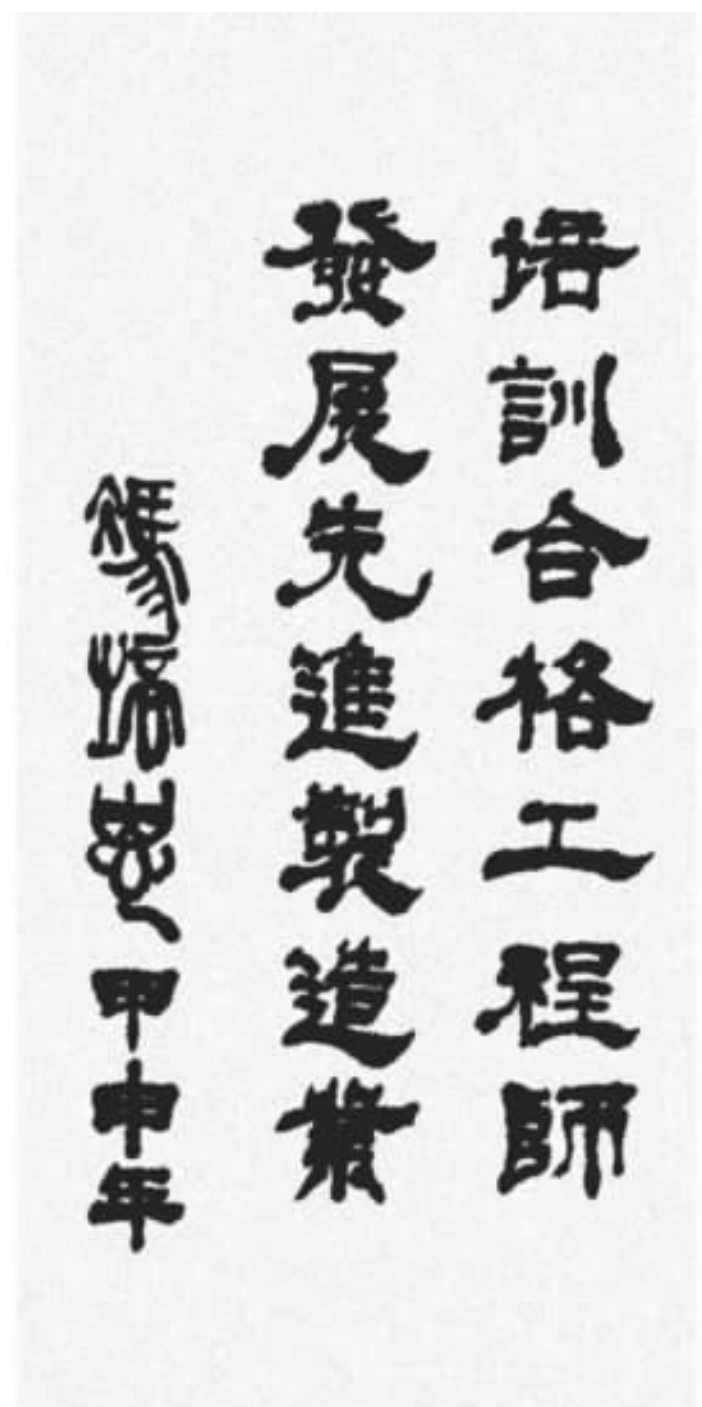 培訓合格工程師
發展先進製造業
馮培恩甲申年